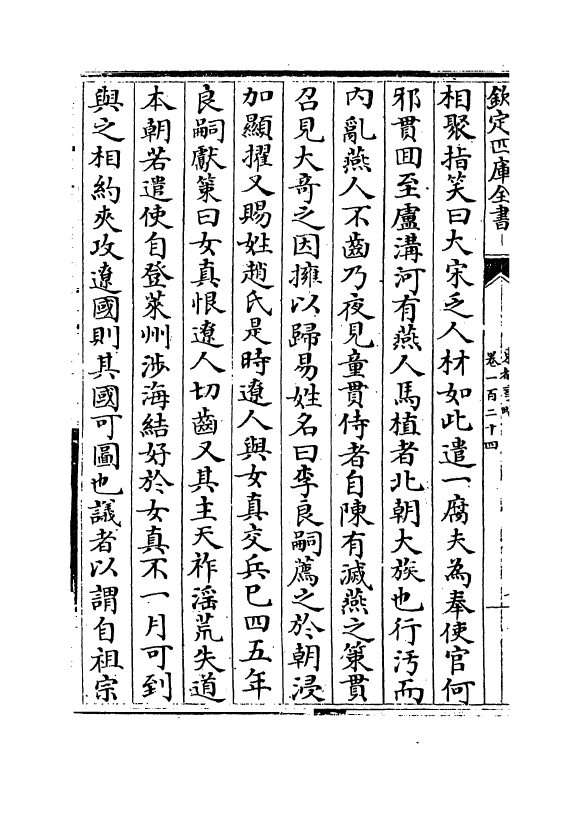 欽定四庫全書
卷一百二十四
相聚指笑曰大宋乏人材如此遣一腐夫為奉使官何
邪貫囬至盧溝河有燕人馬植者北朝大族也行汚而
内亂燕人不齒乃夜見童貫侍者自陳有滅燕之策貫
召見大竒之因擁以歸易姓名曰李良嗣薦之於朝浸
加顯擢又賜姓趙氏是時遼人與女真交兵已四五年
良嗣獻策曰女真恨遼人切齒又其主天祚淫荒失道
本朝若遣使自登萊州涉海結好於女真不一月可到
與之相約夾攻遼國則其國可圖也議者以謂自祖宗